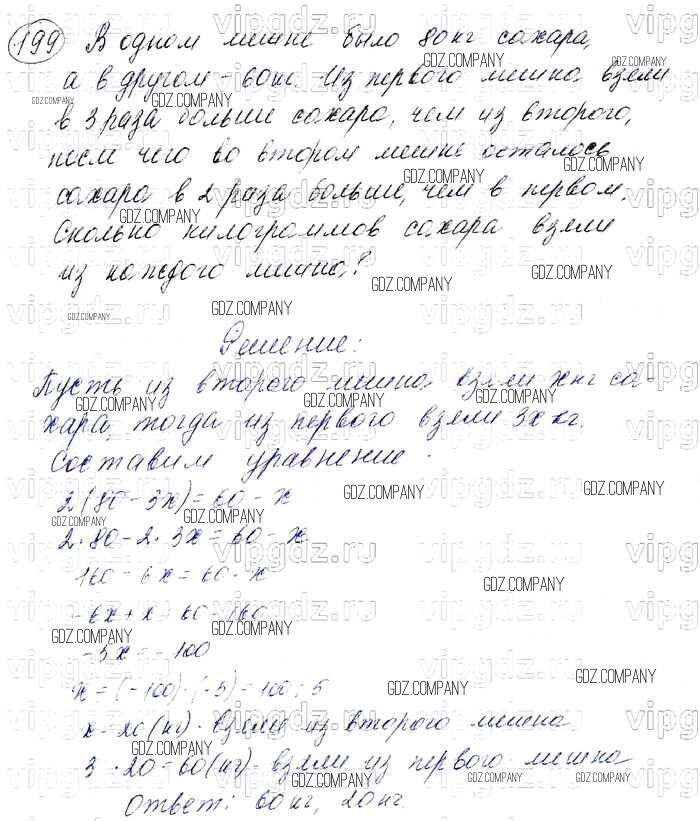 199 В одном мешке было 80 кг сахара,
а в другом - 60 кг. Из первого мешка взяли
в 3 раза больше сахара, чем из второго,
после чего во втором мешке осталось
сахара в 2 раза больше, чем в первом.
Сколько килограммов сахара взяли
из каждого мешка?
Решение:
Пусть из второго мешка взяли x кг са-
хара, тогда из первого взяли 3x кг.
Составим уравнение.
2(80 - 3x) = 60 - x
2·80 - 2·3x = 60 - x
160 - 6x = 60 - x
-6x + x = 60 - 160
-5x = -100
x = (-100) : (-5) = 100 : 5
x = 20 (кг) - взяли из второго мешка
3 · 20 = 60 (кг) - взяли из первого мешка
Ответ: 60 кг, 20 кг.